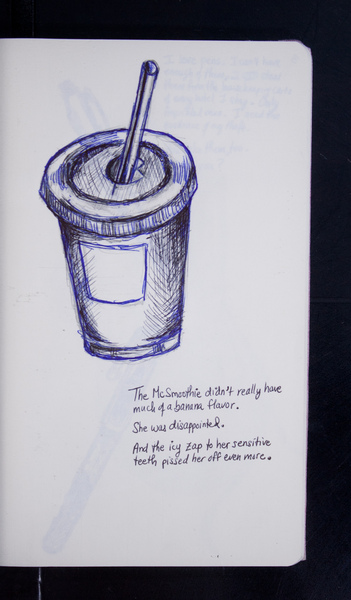 The McSmoothie didn't really have
much of a banana flavor.
She was disappointed.
And the icy zap to her sensitive
teeth pissed her off even more.